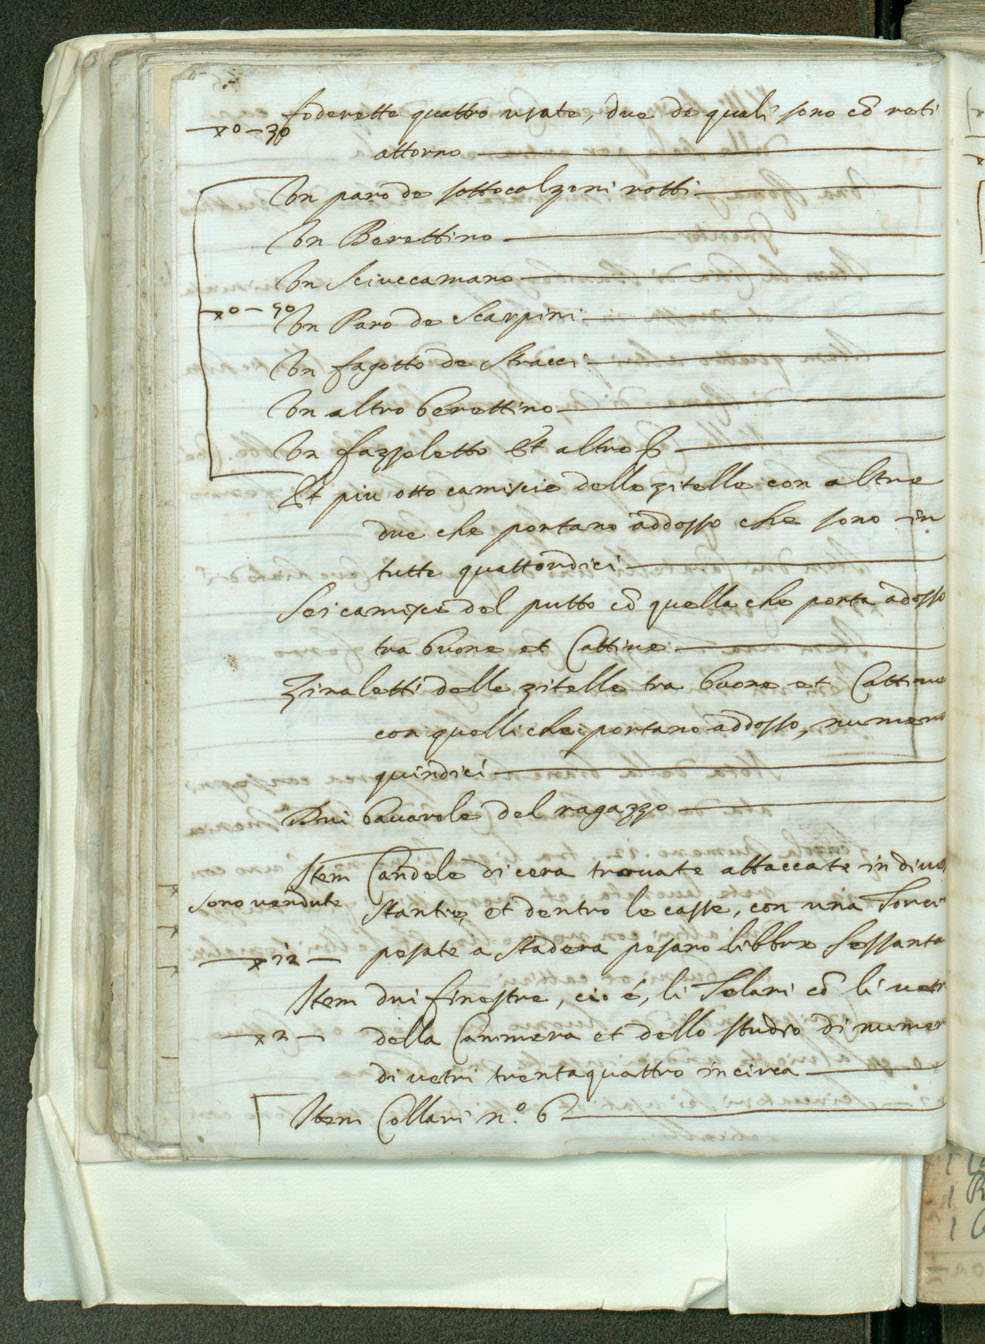 foderette quattro usate, due de quali sono cō reti
xo – 30
attorno
Un paro de sottocalzoni rotti
Un Berettino
Un Sciuccamano
xo – 50
Un Paro de Scarpini
Un fagotto de Stracci
Un altro berettino
Un fazzoletto Et altro
Et più otto camiscie delle zitelle con altre
due che portano addosso che sono in
tutte quattordici
Sei camiscie del putto cō quella che porta adosso
tra buone et Cattive
Zinaletti delle zitelle tra buone et Cattive
con quelli che portano addosso, numero
quindici
Dui bavarole del ragazzo
Item Candele di cera trovate attaccate in dive
sono vendute
stantie, et dentro le casse, con una Torcia
pesate a stadera pesano libbre sessanta
x 12
Item dui finestre, cio é, li Telari cō li vetri
x 2
della Cammera et dello studio di numero
di vetri trentaquattro in circa
Item Collari n.º 6